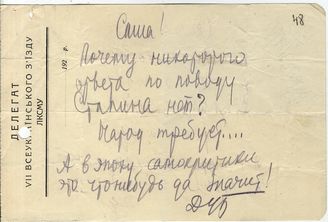 Саша!
48
Почему никоторого
ответа по поводу
Сталина нет?
Народ требует....
А в эпоху самокритики
это что нибудь да значит!
ДЕЛЕГАТ
VII ВСЕУКРАЇНСЬКОГО З'ЇЗДУ
ЛКСМУ
192 р.